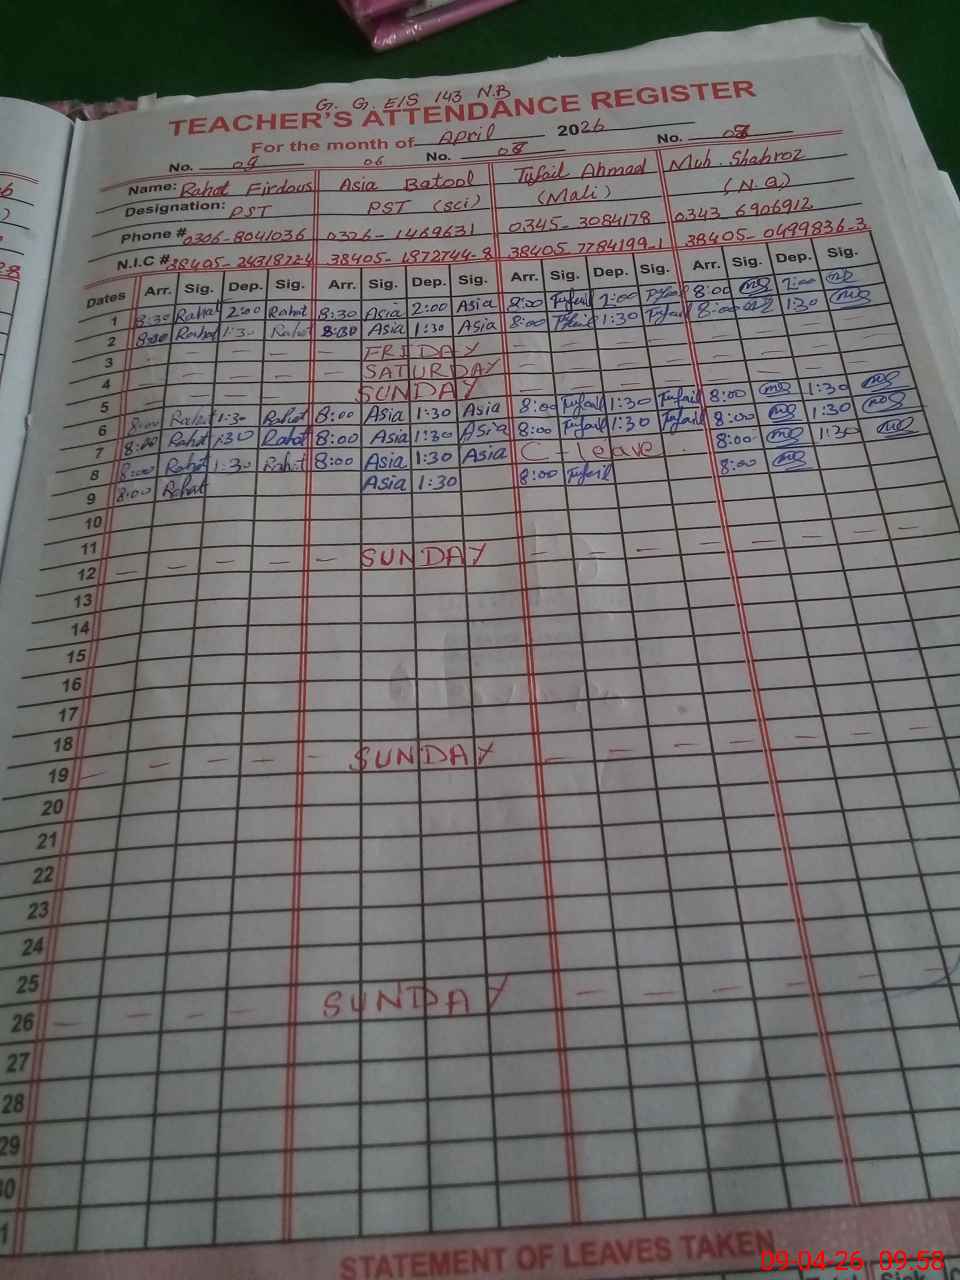 G. G. E/S 143 N.B
TEACHER'S ATTENDANCE REGISTER
For the month of April 2026
No. 09 06 No. 08 No. 08
Name: Rahat Firdous Asia Batool Tufail Ahmad Muh. Shahroz
Designation: PST PST (sci) (Mali) (N.Q)
Phone # 0306-8041036 0326-1469631 0345-3084178 0343 6906912
N.I.C # 38405-2431872-4 38405-1872744-8 38405-7784199-1 38405-0499836-3
Dates Arr. Sig. Dep. Sig. Arr. Sig. Dep. Sig. Arr. Sig. Dep. Sig. Arr. Sig. Dep. Sig.
1 8:30 Rahat 2:00 Rahat 8:30 Asia 2:00 Asia 8:00 Tufail 2:00 Tufail 8:00 2:00
2 8:00 Rahat 1:30 Rahat 8:00 Asia 1:30 Asia 8:00 Tufail 1:30 Tufail 8:00 1:30
3 — — — — FRIDAY — — — — — — —
4 — — — — SATURDAY — — — — — — —
5 — — — — SUNDAY — — — — — — —
6 8:00 Rahat 1:30 Rahat 8:00 Asia 1:30 Asia 8:00 Tufail 1:30 Tufail 8:00 1:30
7 8:00 Rahat 1:30 Rahat 8:00 Asia 1:30 Asia 8:00 Tufail 1:30 Tufail 8:00 1:30
8 8:00 Rahat 1:30 Rahat 8:00 Asia 1:30 Asia C-leave 8:00 1:30
9 8:00 Rahat Asia 1:30 8:00 Tufail 8:00
10
11
12 — — — — — SUNDAY — — — — — — —
13
14
15
16
17
18
19 — — — — — SUNDAY — — — — — — —
20
21
22
23
24
25
26 — — — — SUNDAY — — — — — —
27
28
29
30
1
STATEMENT OF LEAVES TAKEN
09-04-26 09:58